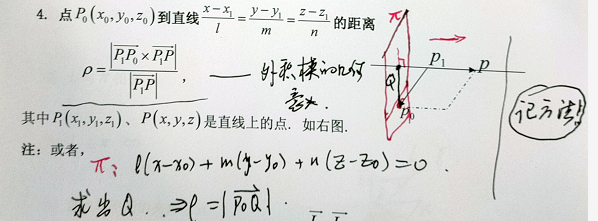 4. 点P₀(x₀,y₀,z₀)到直线(x−x₁)/l=(y−y₁)/m=(z−z₁)/n的距离
ρ=|P₁P₀×P₁P|/|P₁P|, —— 外积模的几何
意义.
π
P₁ P
Q
P₀
记方法!!
其中P₁(x₁,y₁,z₁)、P(x,y,z)是直线上的点. 如右图.
注: 或者,
π: l(x-x₀)+m(y-y₀)+n(z-z₀)=0.
求出Q. ⇒ρ=|P₀Q|.